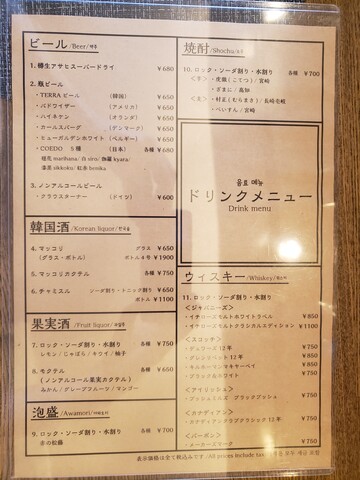 ビール /Beer/맥주
1. 樽生アサヒスーパードライ ￥680
2. 瓶ビール
・TERRAビール (韓国) ￥650
・バドワイザー (アメリカ) ￥650
・ハイネケン (オランダ) ￥650
・カールスバーグ (デンマーク) ￥650
・ヒューガルデンホワイト (ベルギー) ￥650
・COEDO 5種 (日本) 各種 ￥680
毬花 marihana/白 siro/伽羅 kyara
漆黒 sikkoku/紅赤 benika
3. ノンアルコールビール
・クラウスターラー (ドイツ) ￥600
韓国酒 /Korean liquor/
4. マッコリ グラス ￥650
(グラス・ボトル) ボトル4号 ￥1900
5. マッコリカクテル 各種 ￥750
6. チャミスル ソーダ割り・トニック割り ￥650
ボトル ￥1100
果実酒 /Fruit liquor/
7. ロック・ソーダ割り・水割り 各種 ￥750
レモン/じゃばら/キウイ/柚子
8. モクテル 各種 ￥650
(ノンアルコール果実カクテル)
みかん/グレープフルーツ/マンゴー
泡盛 /Awamori/
9. ロック・ソーダ割り・水割り 各種 ￥700
焼酎 /Shochu/소주
10. ロック・ソーダ割り・水割り 各種 ￥700
<芋> ・虎徹(こてつ)/宮崎
・ざまに/高知
<麦> ・村正(むらまさ)/長崎壱岐
・べいすん/宮崎
음료 메뉴
ドリンクメニュー
Drink menu
ウィスキー /Whiskey/위스키
11. ロック・ソーダ割り・水割り
<ジャパニーズ>
・イチローズモルトホワイトラベル ￥850
・イチローズモルトクランカルエディション ￥1100
<スコッチ>
・デュワーズ12年 ￥750
・グレンリベット12年 ￥850
￥850
・ブラック&ホワイト ￥750
<アイリッシュ>
・ブッシュミルズ ブラックブッシュ ￥750
<カナディアン>
・カナディアンクラブクラシック12年 ￥750
<バーボン>
・メーカーズマーク ￥750
表示価格は全て税込みです/All prices include tax